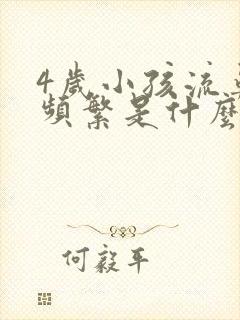 4歲小孩流
頻繁是什麼
何毅平